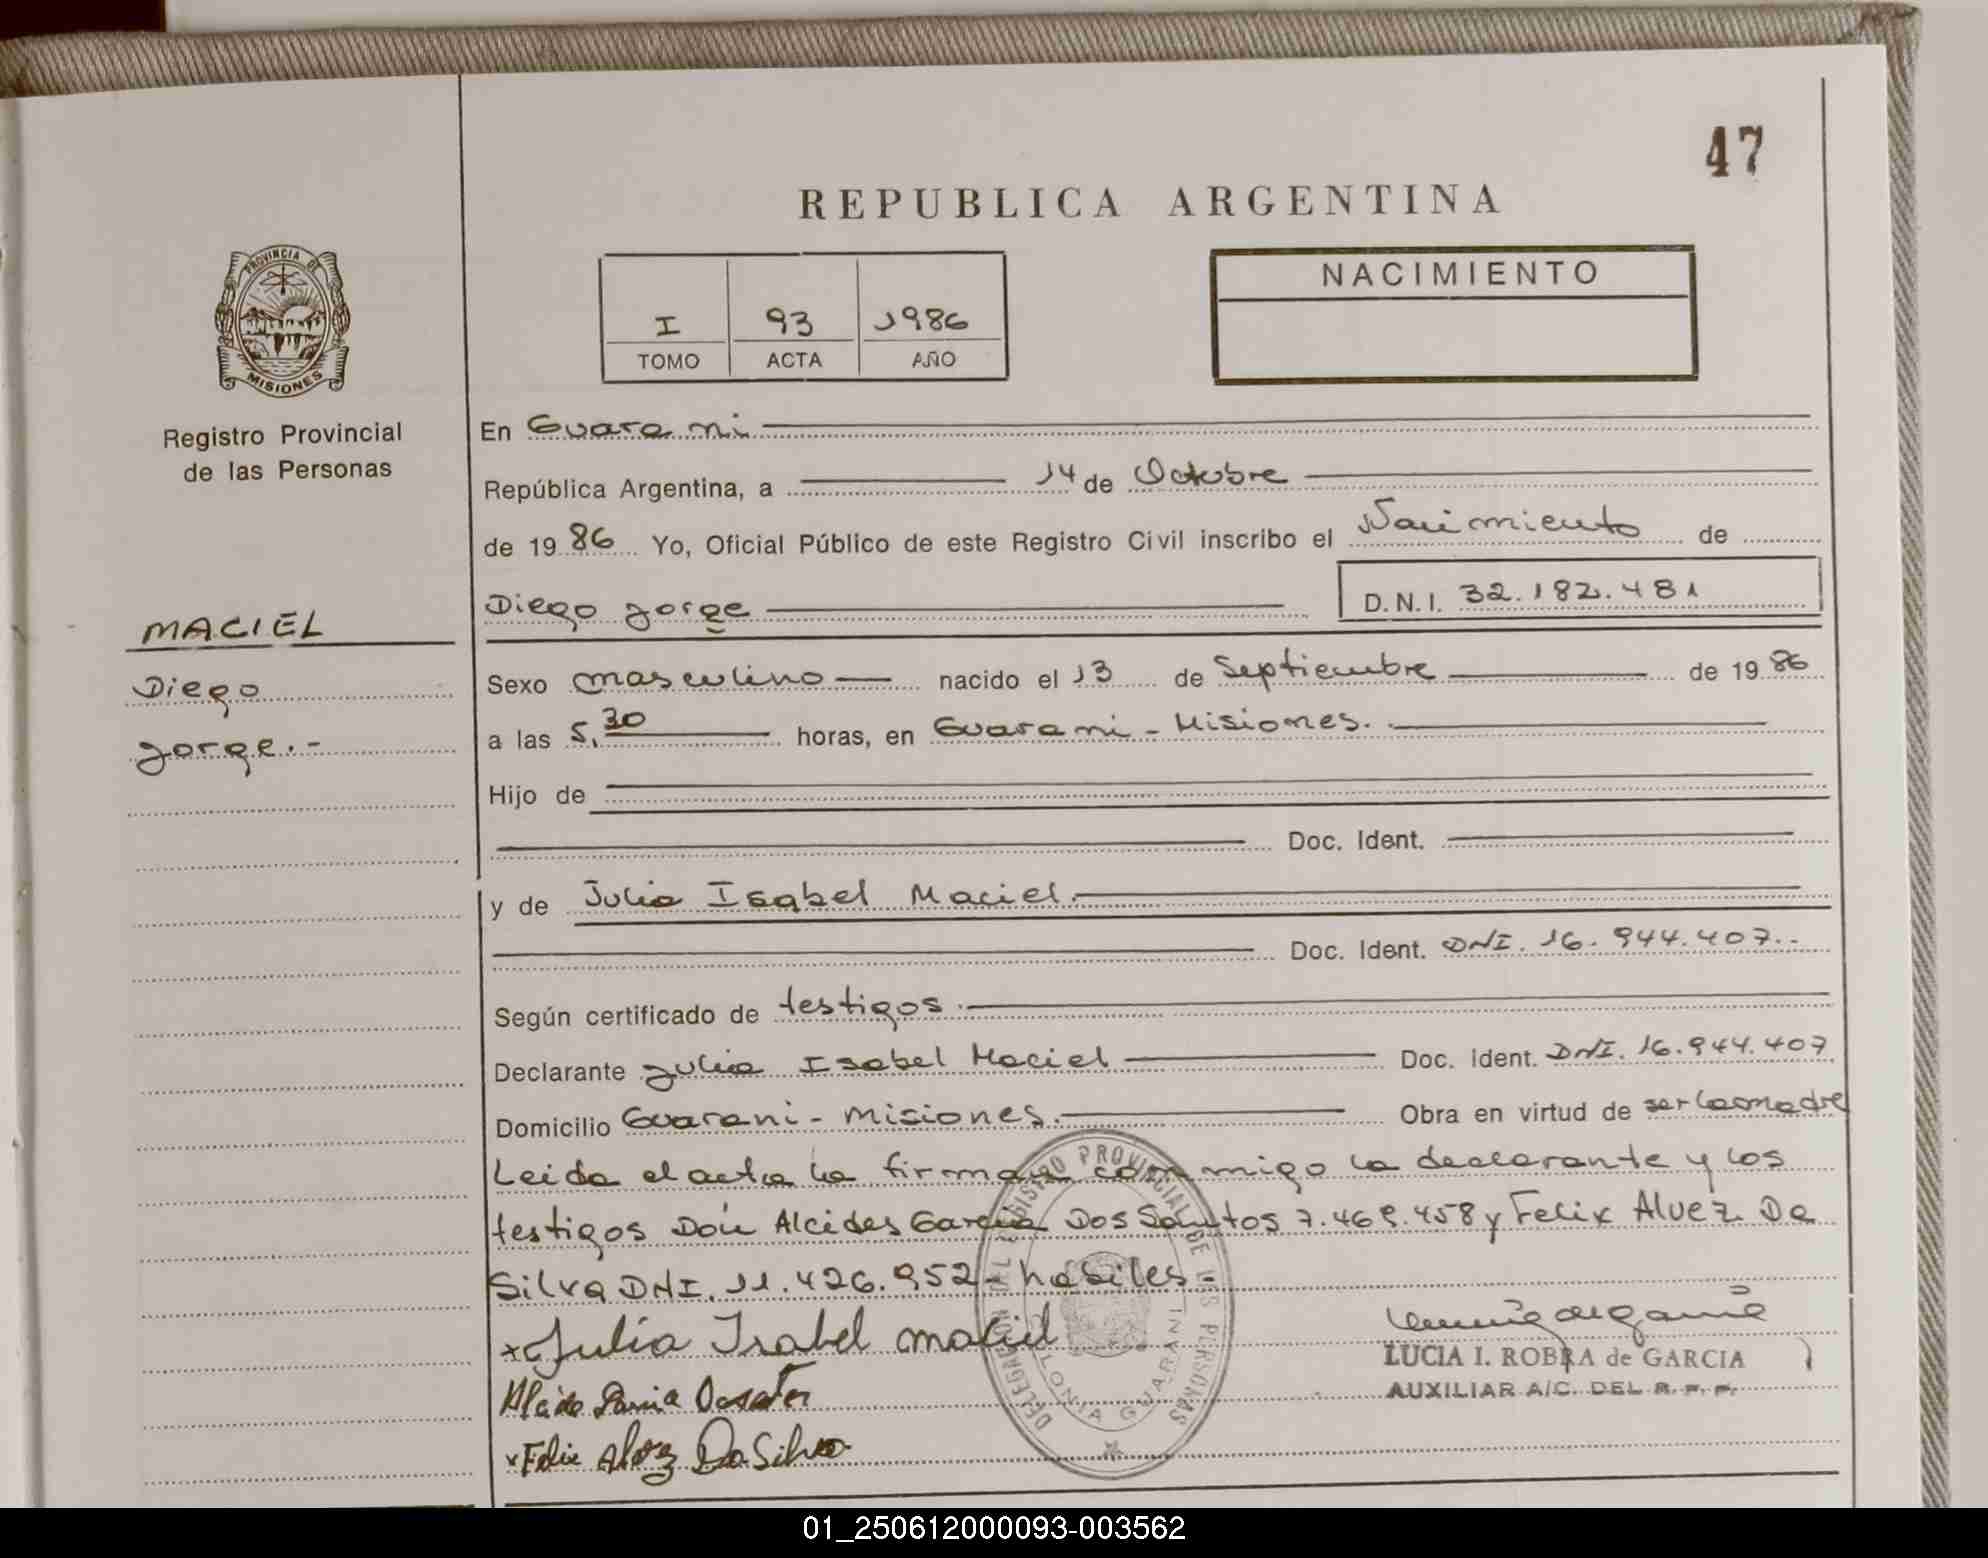 47
REPUBLICA ARGENTINA
PROVINCIA DE
MISIONES
Registro Provincial
de las Personas
I 93 1986
TOMO ACTA AÑO
NACIMIENTO
MACIEL
Diego
Jorge.-
En Guarani
República Argentina, a 14 de Octubre
de 1986 Yo, Oficial Público de este Registro Civil inscribo el Nacimiento de
Diego Jorge D.N.I. 32.182.481
Sexo masculino nacido el 13 de Septiembre de 1986
a las 5,30 horas, en Guarani - Misiones.
Hijo de
Doc. Ident.
y de Julia Isabel Maciel.
Doc. Ident. DNI. 16.944.407.-
Según certificado de testigos.
Declarante Julia Isabel Maciel Doc. Ident. DNI. 16.944.407
Domicilio Guarani - Misiones. Obra en virtud de ser la madre
Leida el acta la firman conmigo la declarante y los
testigos Don Alcides Garcia Dos Santos 7.469.458 y Felix Alvez Da
Silva DNI. 11.426.952 - habiles -
x Julia Isabel maciel
x Felix Alvez Da Silva
LUCIA I. ROBRA de GARCIA
AUXILIAR A/C. DEL R. P. P.
DELEGACION DEL REGISTRO PROVINCIAL DE LAS PERSONAS
COLONIA GUARANI
01_250612000093-003562